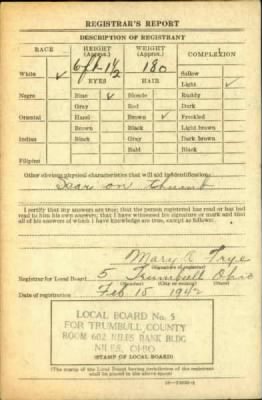 REGISTRAR'S REPORT
DESCRIPTION OF REGISTRANT
RACE HEIGHT (Approx.) WEIGHT (Approx.) COMPLEXION
6 ft 1 1/2 180
White ✓ EYES HAIR Sallow
Light ✓
Negro Blue ✓ Blonde Ruddy
Gray Red Dark
Oriental Hazel Brown ✓ Freckled
Brown Black Light brown
Indian Black Gray Dark brown
Bald Black
Filipino
Other obvious physical characteristics that will aid in identification
Scar on thumb
I certify that my answers are true; that the person registered has read or has had
read to him his own answers; that I have witnessed his signature or mark and that
all of his answers of which I have knowledge are true, except as follows:
Mary A Frye
(Signature of registrar)
Registrar for Local Board 5 Trumbull Ohio
(Number) (City or county) (State)
Date of registration Feb 15 1942
LOCAL BOARD No. 5
FOR TRUMBULL COUNTY
ROOM 602 NILES BANK BLDG
NILES, OHIO
(STAMP OF LOCAL BOARD)
(The stamp of the Local Board having jurisdiction of the registrant
shall be placed in the above space.)